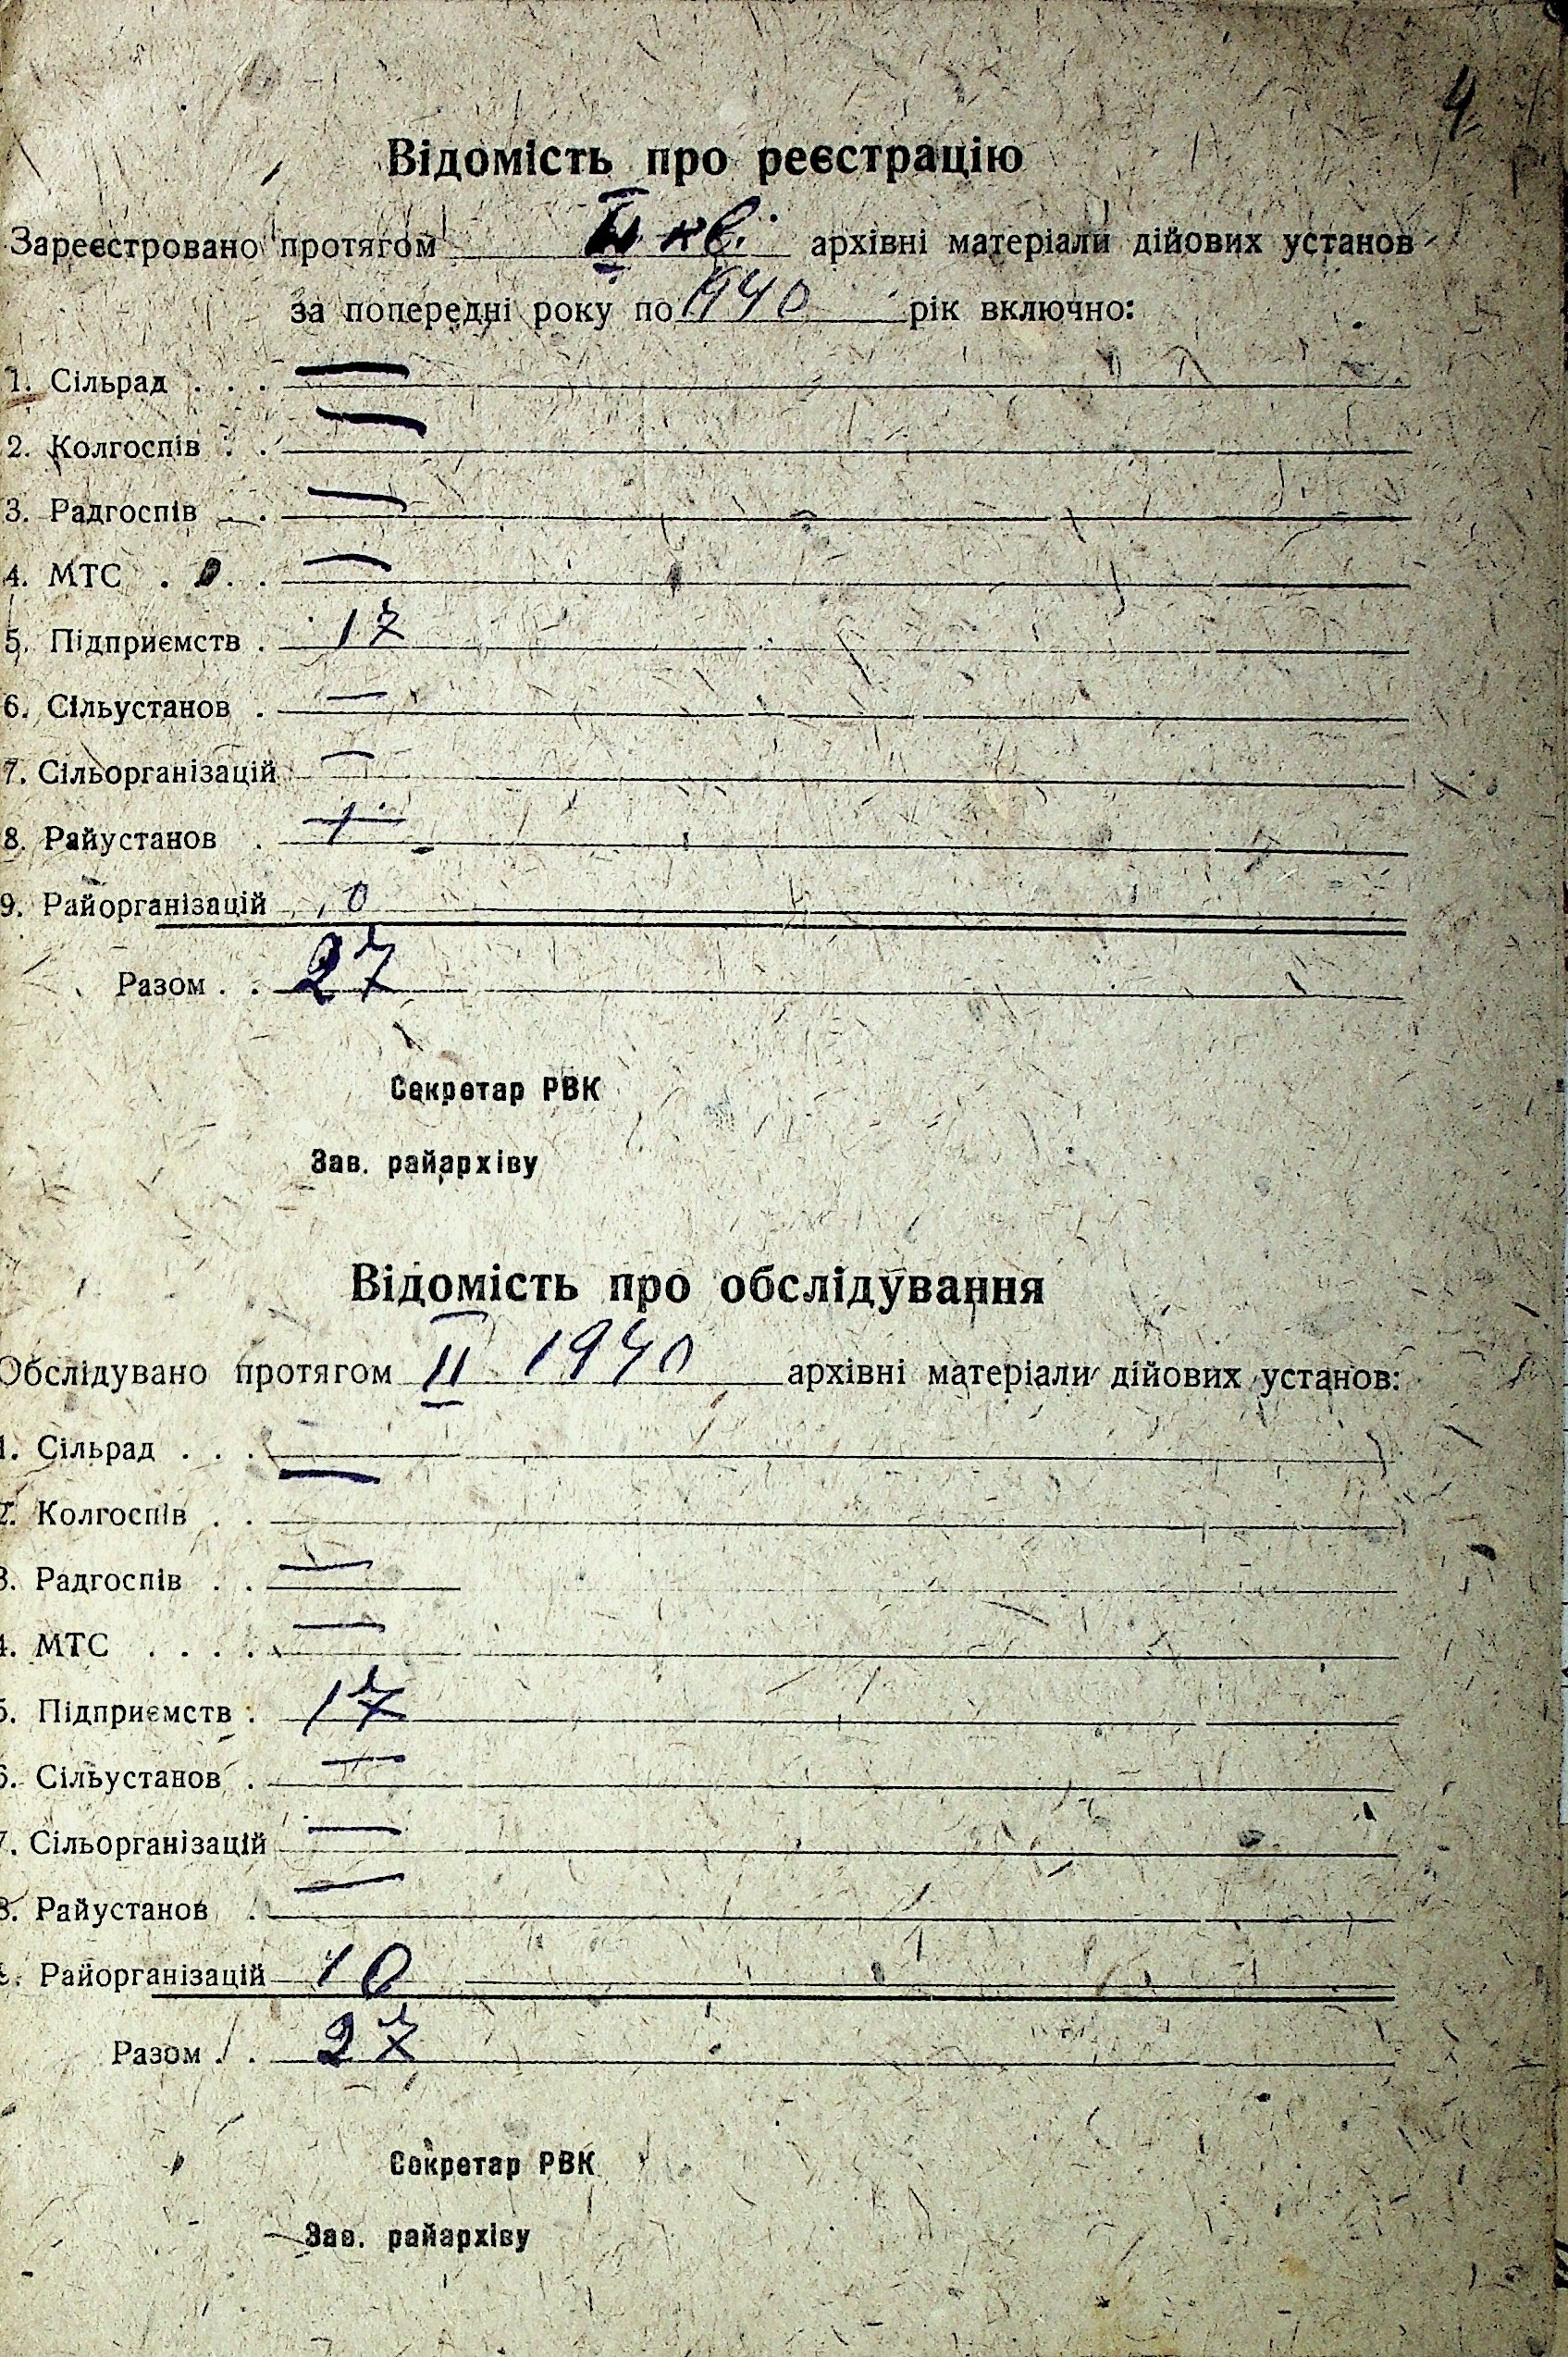 4
Відомість про реєстрацію
Зареєстровано протягом II кв. архівні матеріали дійових установ
за попередні року по 1940 рік включно:
1. Сільрад . . . —
2. Колгоспів . . —
3. Радгоспів . . —
4. МТС . . . —
5. Підприємств . 17
6. Сільустанов . —
7. Сільорганізацій —
8. Райустанов . —
9. Райорганізацій 10
Разом . . 27
Секретар РВК
Зав. райархіву
Відомість про обслідування
Обслідувано протягом II 1940 архівні матеріали дійових установ:
1. Сільрад . . . —
2. Колгоспів . .
3. Радгоспів . . —
4. МТС . . . . —
5. Підприємств . 17
6. Сільустанов . —
7. Сільорганізацій —
8. Райустанов . —
9. Райорганізацій 10
Разом . . 27
Секретар РВК
Зав. райархіву